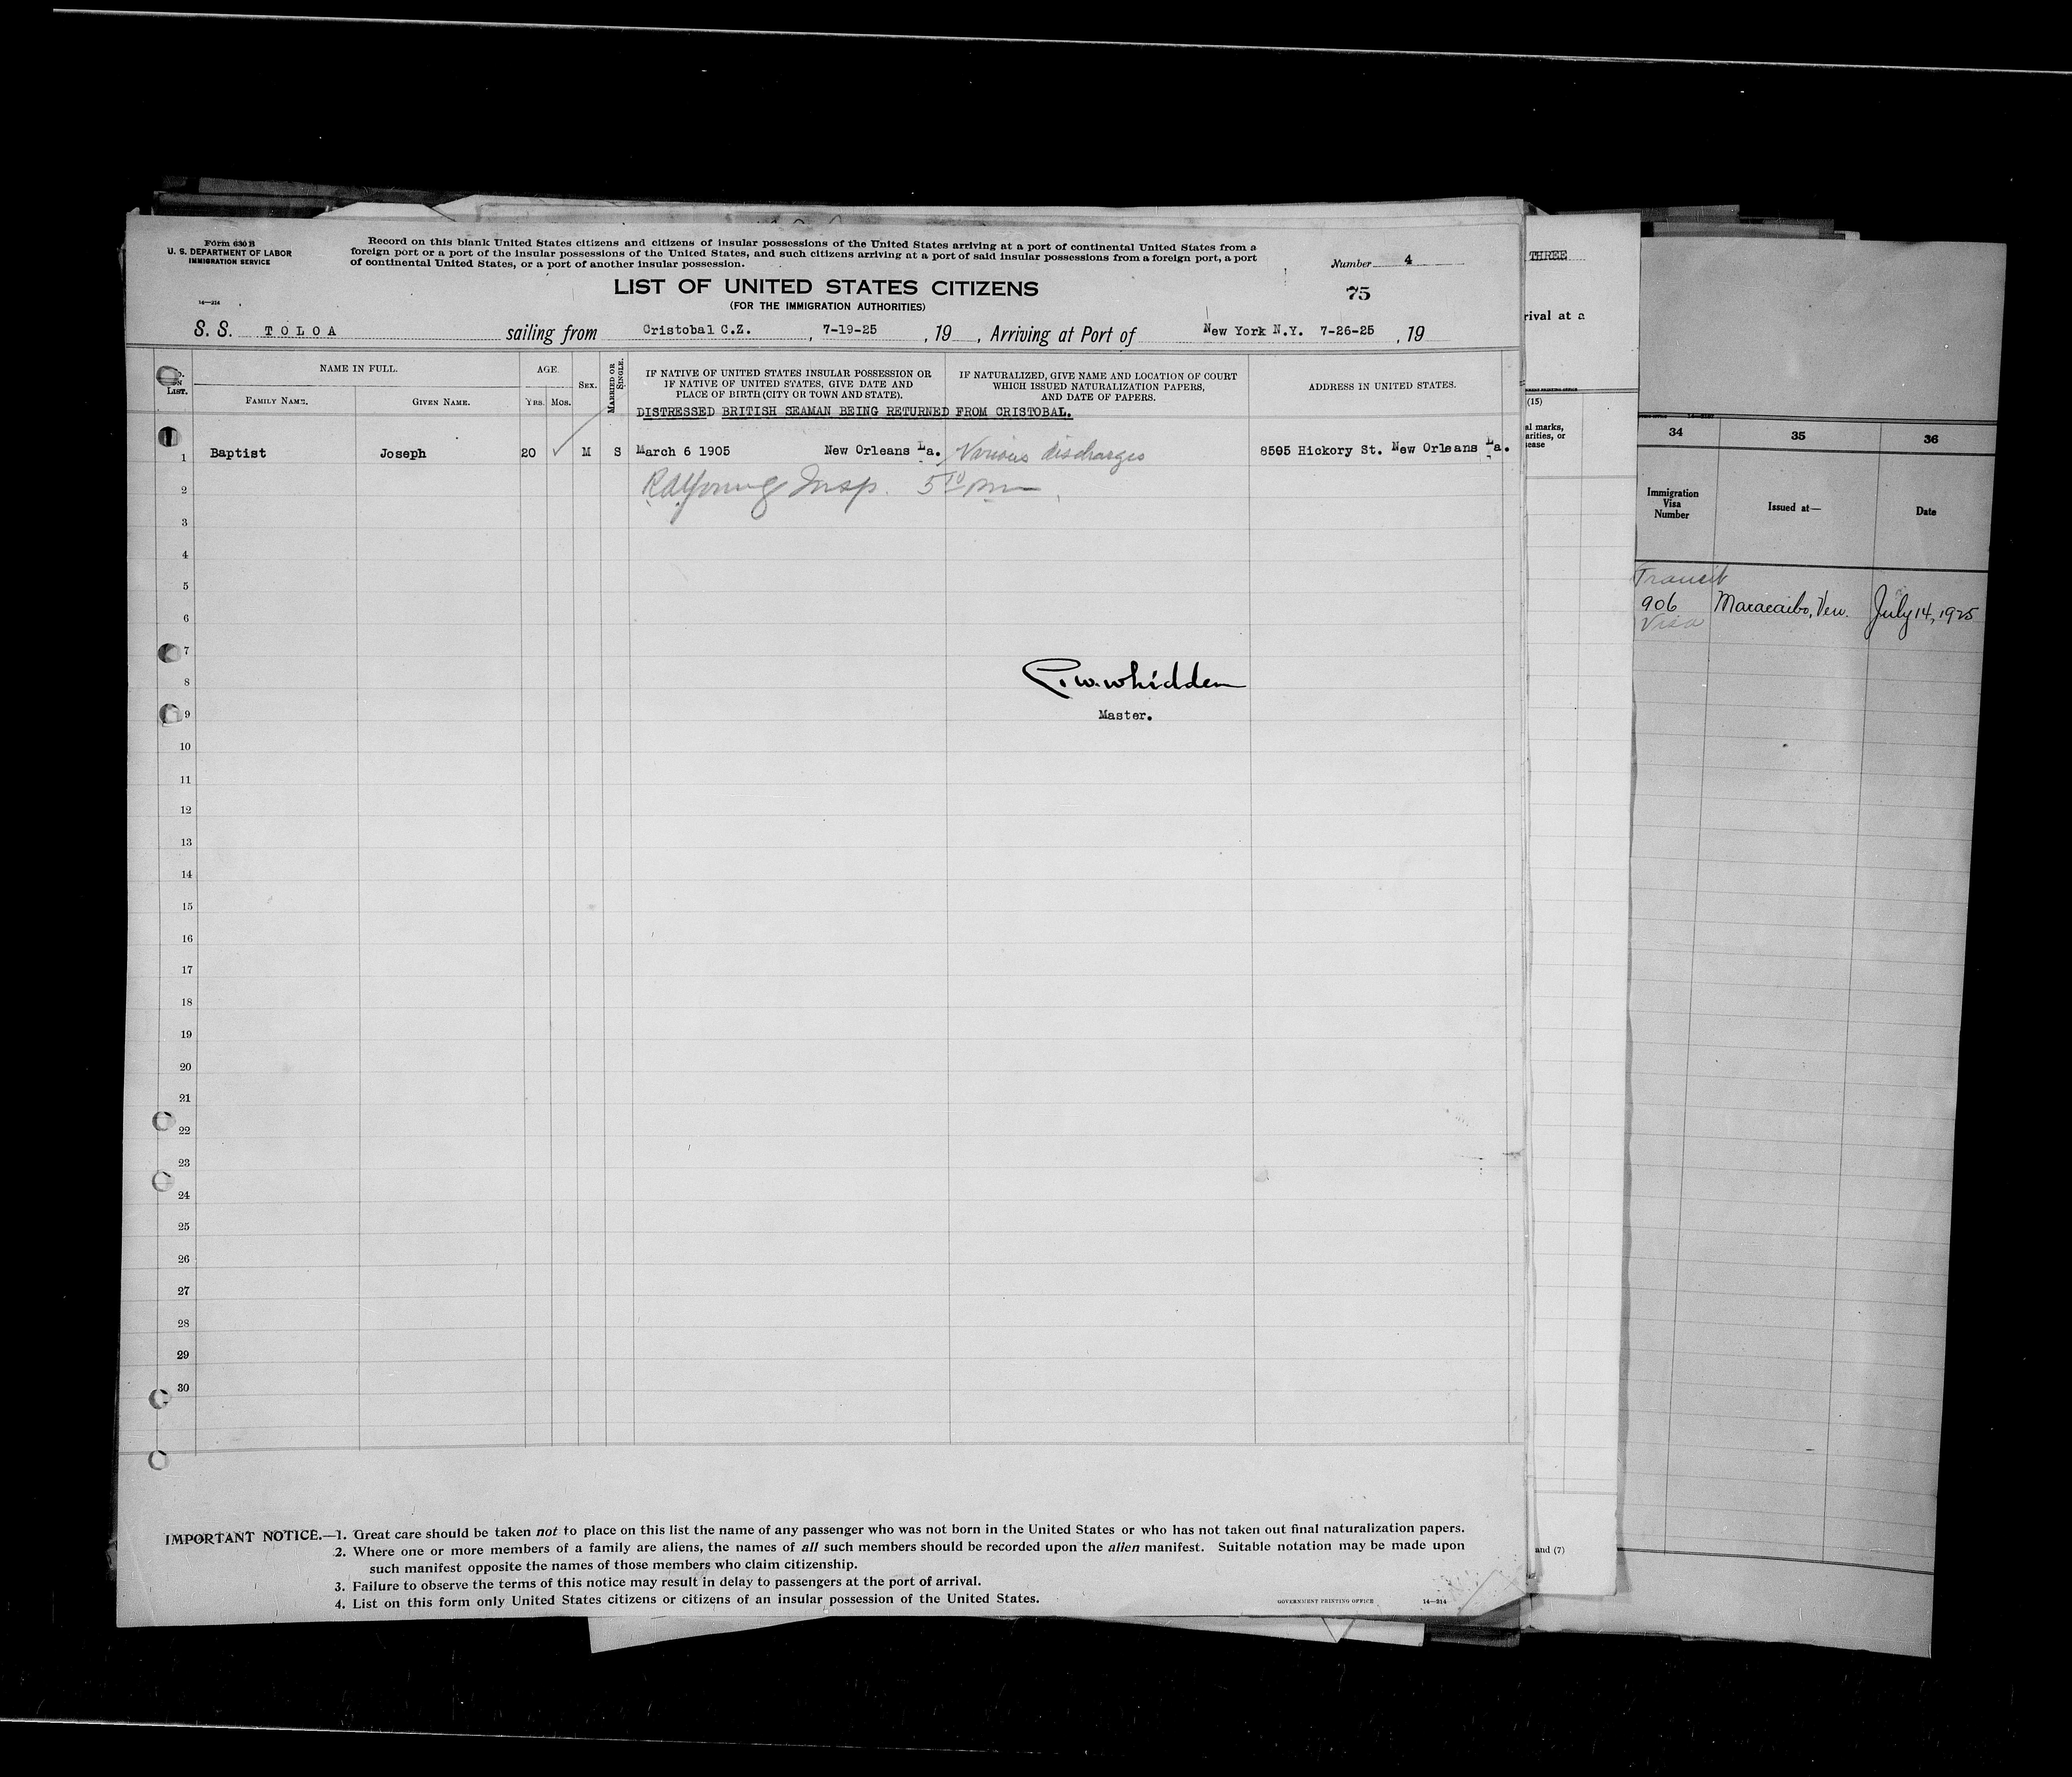 Form 630 B
U. S. DEPARTMENT OF LABOR
IMMIGRATION SERVICE
14—214
Record on this blank United States citizens and citizens of insular possessions of the United States arriving at a port of continental United States from a
foreign port or a port of the insular possessions of the United States, and such citizens arriving at a port of said insular possessions from a foreign port, a port
of continental United States, or a port of another insular possession.
Number 4
LIST OF UNITED STATES CITIZENS
75
(FOR THE IMMIGRATION AUTHORITIES)
S. S. TOLOA sailing from Cristobal C.Z. , 7-19-25 , 19 , Arriving at Port of New York N.Y. 7-26-25 , 19
LIST.
NAME IN FULL.
FAMILY NAME.
GIVEN NAME.
AGE.
YRS. MOS.
SEX.
MARRIED OR
SINGLE.
IF NATIVE OF UNITED STATES INSULAR POSSESSION OR
IF NATIVE OF UNITED STATES, GIVE DATE AND
PLACE OF BIRTH (CITY OR TOWN AND STATE).
IF NATURALIZED, GIVE NAME AND LOCATION OF COURT
WHICH ISSUED NATURALIZATION PAPERS,
AND DATE OF PAPERS.
ADDRESS IN UNITED STATES.
DISTRESSED BRITISH SEAMAN BEING RETURNED FROM CRISTOBAL.
1 Baptist Joseph 20 M S March 6 1905 New Orleans La. Various discharges 8505 Hickory St. New Orleans La.
2 Insp. 5 10 pm
3
4
5
6
7
8
C.W. Whidden
9
Master.
10
11
12
13
14
15
16
17
18
19
20
21
22
23
24
25
26
27
28
29
30
IMPORTANT NOTICE.—1. Great care should be taken not to place on this list the name of any passenger who was not born in the United States or who has not taken out final naturalization papers.
2. Where one or more members of a family are aliens, the names of all such members should be recorded upon the alien manifest. Suitable notation may be made upon
such manifest opposite the names of those members who claim citizenship.
3. Failure to observe the terms of this notice may result in delay to passengers at the port of arrival.
4. List on this form only United States citizens or citizens of an insular possession of the United States.
GOVERNMENT PRINTING OFFICE
14—214
THREE
rival at a
(15)
al marks,
arities, or
ease
and (7)
34
35
36
Immigration
Visa
Number
Issued at—
Date
Transit
906 Maracaibo, Ven. July 14, 1925
Visa